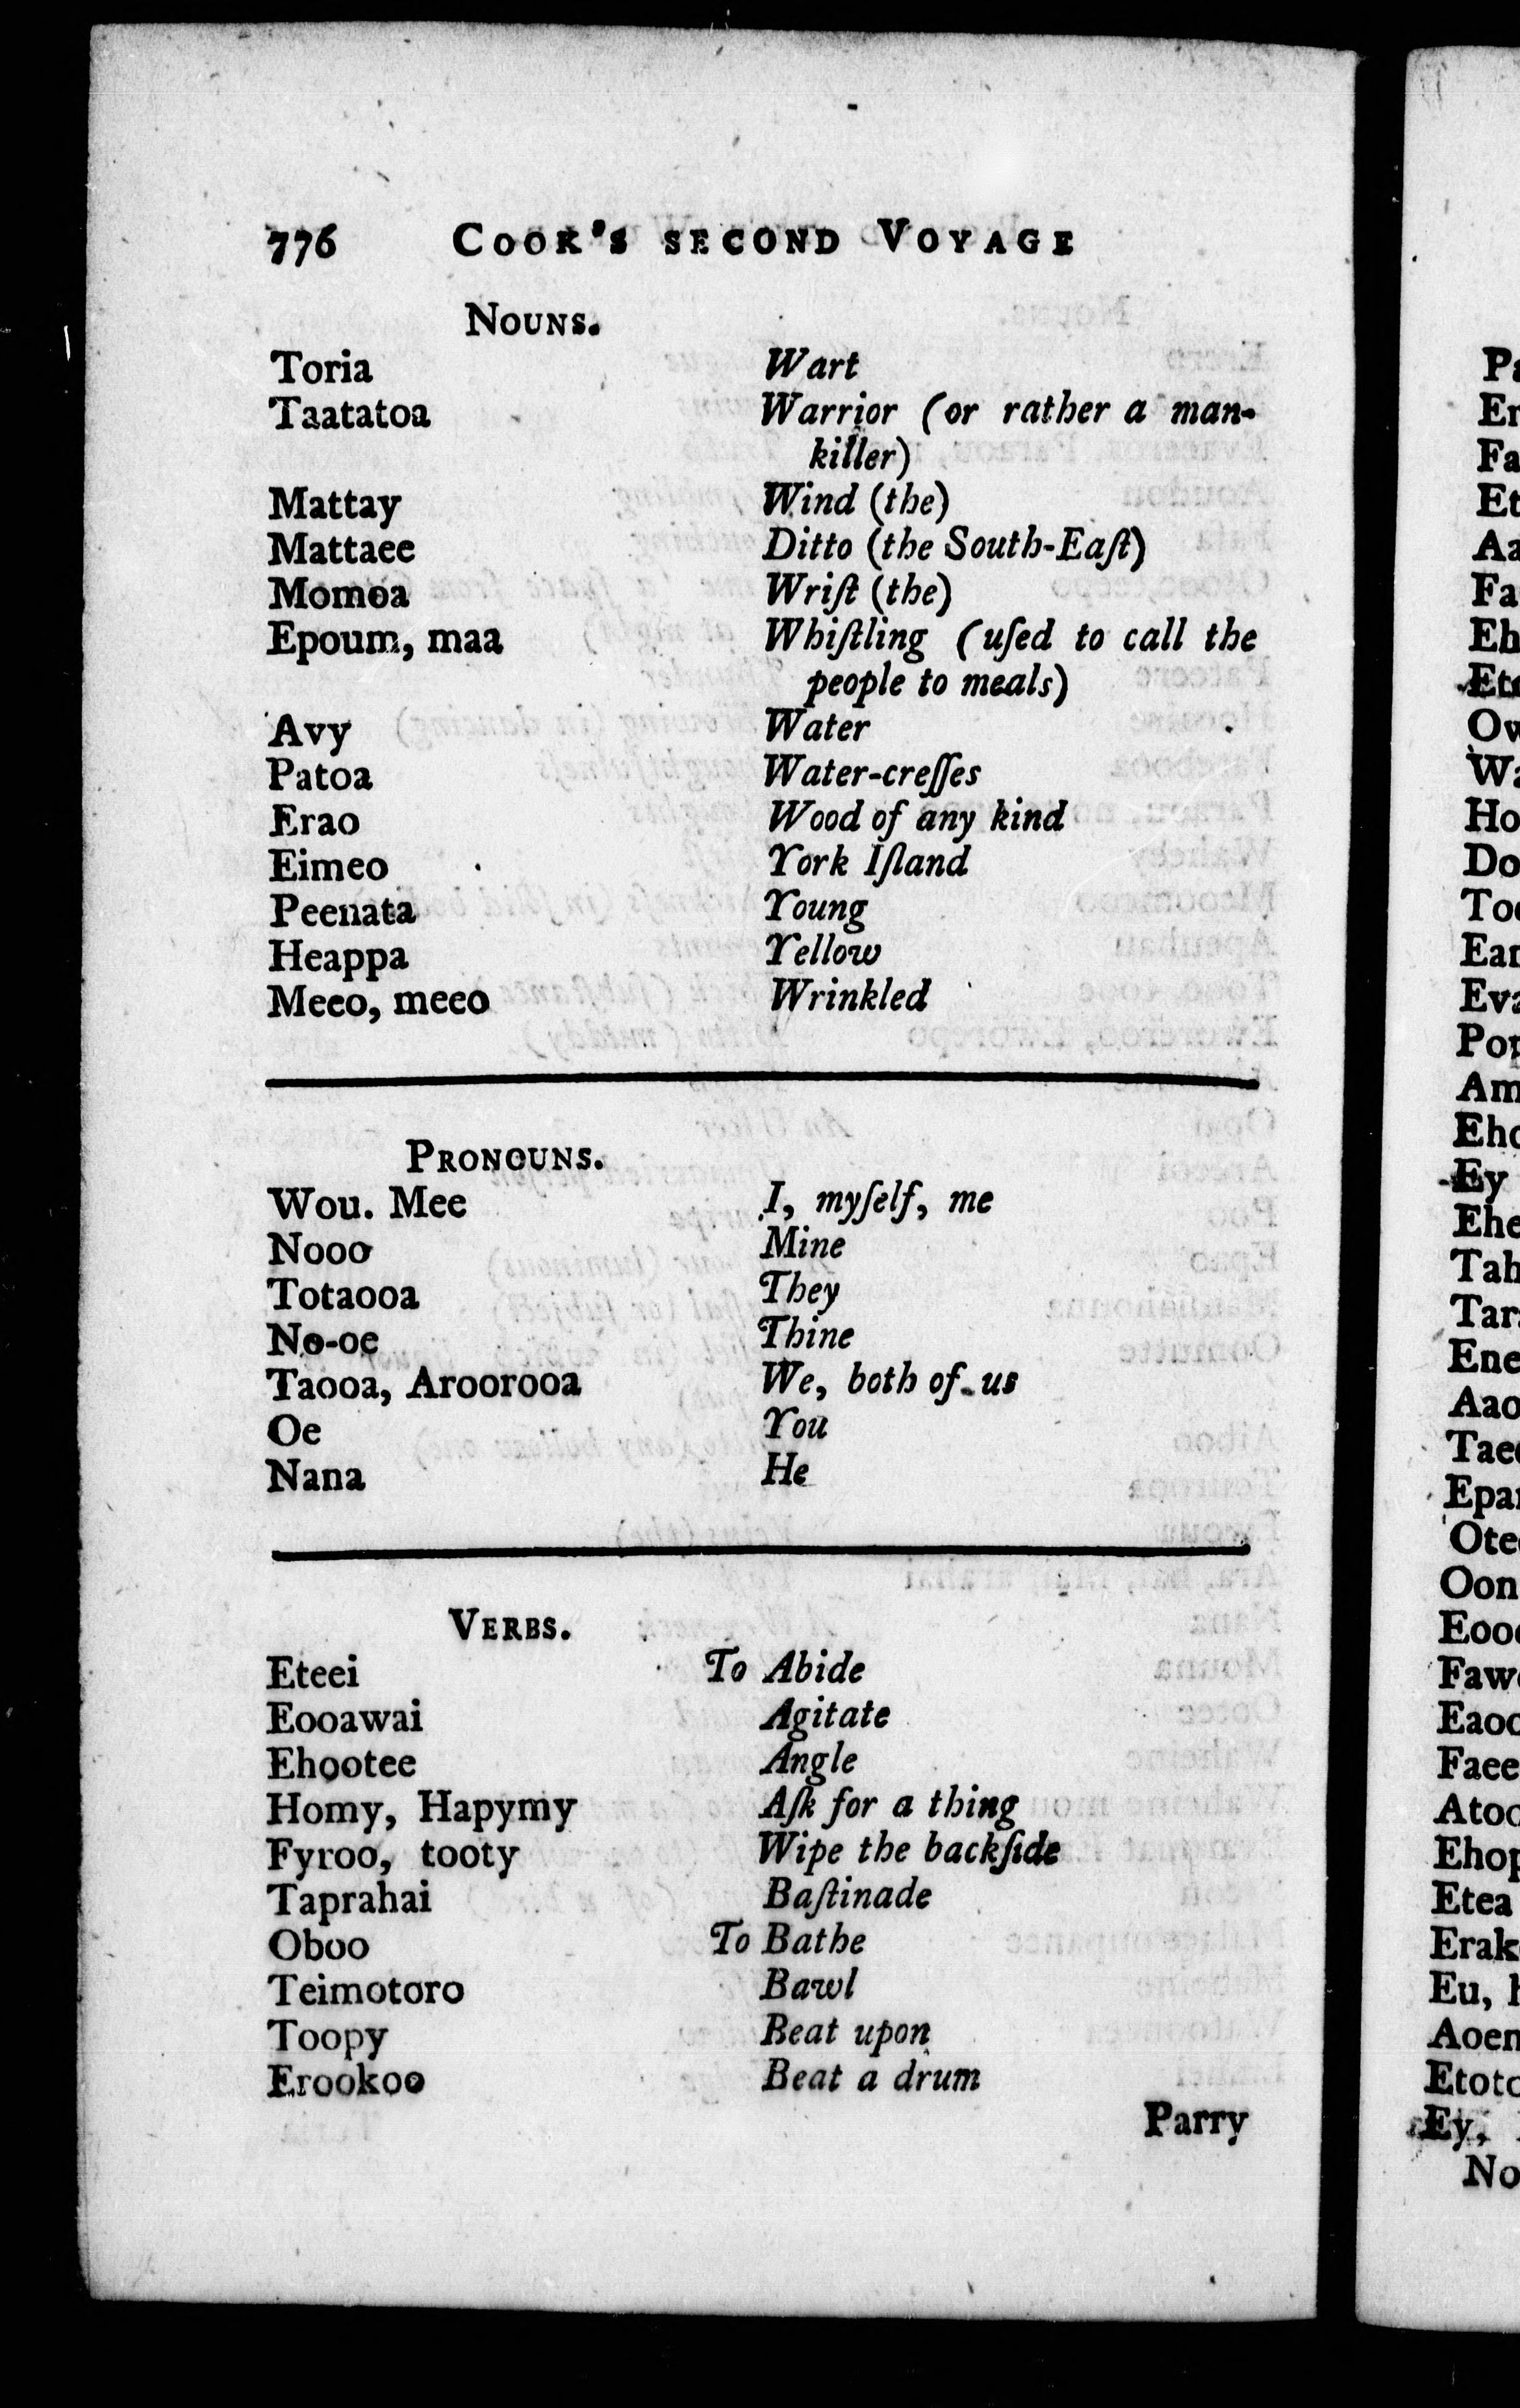 776 COOK'S SECOND VOYAGE
NOUNS.
Toria Wart
Taatatoa Warrior (or rather a man-
killer)
Mattay Wind (the)
Mattaee Ditto (the South-Eaſt)
Momoa Wriſt (the)
Epoum, maa Whiſtling (uſed to call the
people to meals)
Avy Water
Patoa Water-creſſes
Erao Wood of any kind
Eimeo York Iſland
Peenata Young
Heappa Yellow
Meeo, meeo Wrinkled
PRONOUNS.
Wou. Mee I, myſelf, me
Nooo Mine
Totaooa They
No-oe Thine
Taooa, Aroorooa We, both of us
Oe You
Nana He
VERBS.
Eteei To Abide
Eooawai Agitate
Ehootee Angle
Homy, Hapymy Aſk for a thing
Fyroo, tooty Wipe the backſide
Taprahai Baſtinade
Oboo To Bathe
Teimotoro Bawl
Toopy Beat upon
Erookoo Beat a drum
Parry